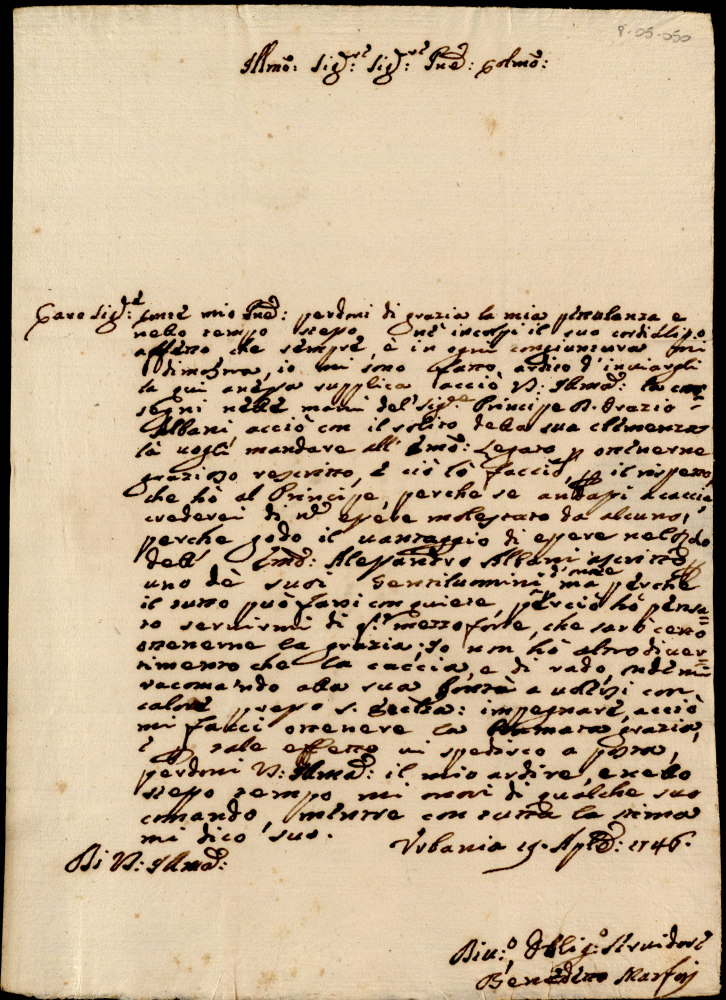 8-05-050
Illmo: Sig:re Sig:re Pne: Colmo:
Caro Sig:re mio Pne: perdoni di grazia la mia petulanza e
nello tempo stesso, ne incolpi il suo cordialis.o
affetto che sempre, è in ogni congiuntura mi
dimostra, io mi sono fatto ardito d'inviargli
la qui anessa supplica acciò V: Illma: la con=
segni nelle mani del Sig:re Principe D. Orazio
Albani acciò con il solito della sua clemenza
la vogli mandare all' Emo: Legato p ottenerne
grazioso rescritto, è ciò lo faccio, p il rispetto,
che hò al Principe, perche se andassi a caccia
crederei di n essere molestato da alcuno,
perche godo il vantaggio di essere nello
dell' Emo: Alessandro Albani ascritto
uno de suoi Gentiluomini d'onore ma perche
il tutto può farsi con quiete, perciò hò pensa=
to servirmi di q:to mezzo forte, che sarò certo
ottenerne la grazia; Io non hò altro diver=
timento che la caccia, e di rado, onde mi
racomando alla sua bontà a volersi con
calore presso S. Eccza: impegnare, acciò
mi facci ottenere la bramata grazia,
è p tale effetto vi spedisco a posta,
perdoni V: Illma: il mio ardire, e nello
stesso tempo mi onori di qualche suo
comando, mentre con tutta la stima
mi dico suo.
Urbania 19. Aple: 1746.
Di V: Illma:
Div:o Oblig:o Servidore
Benedetto